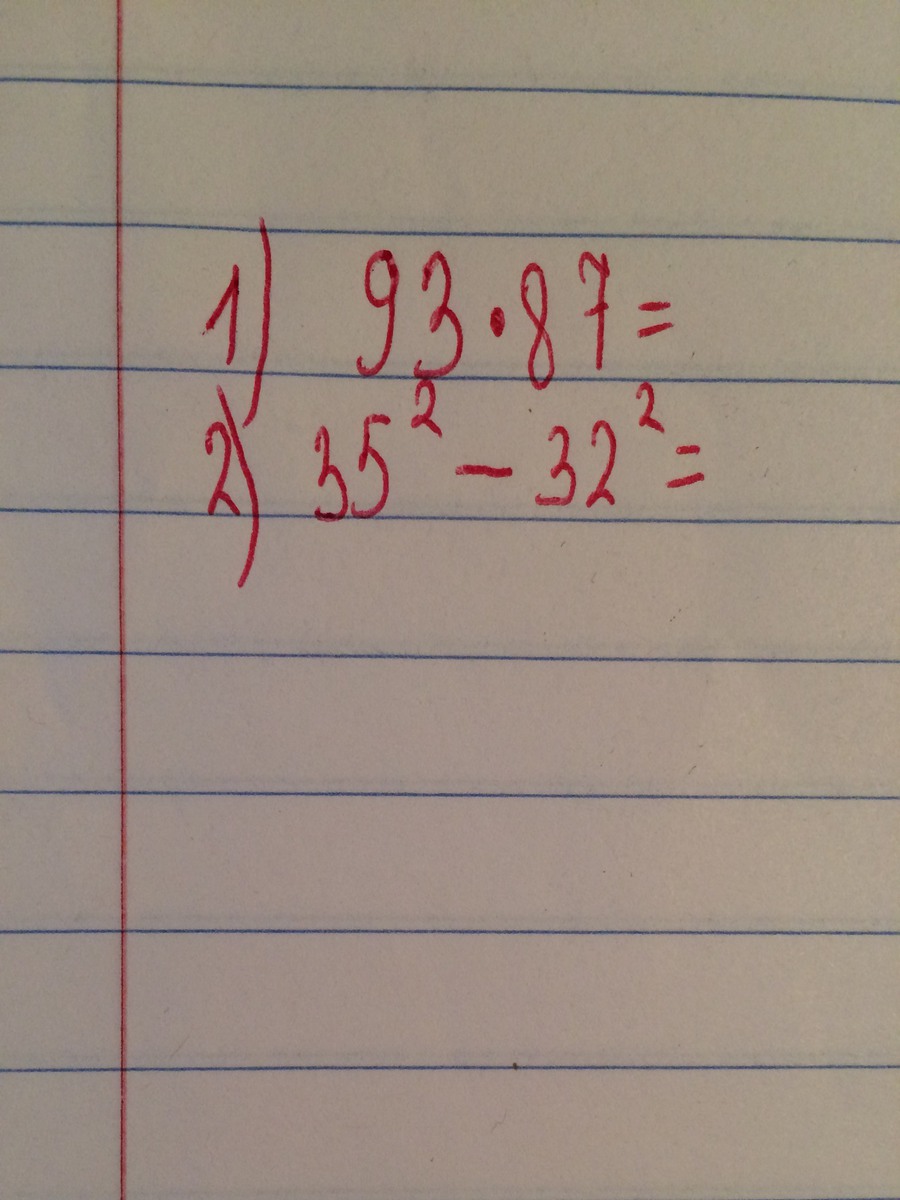 1) 93·87=
2) 35² − 32² =